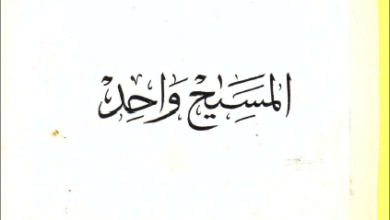 المَسِيح وَاحِد